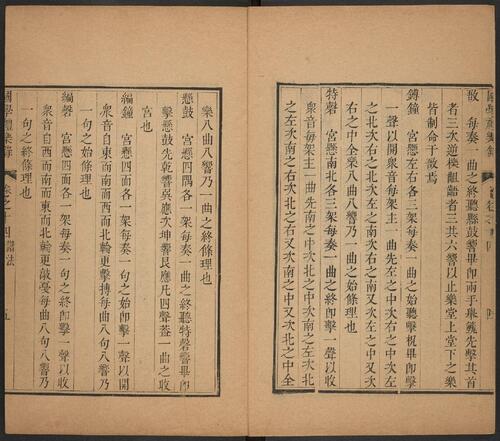 敔　每奏一曲之終聽縣鼓響畢卽兩手舉籈先擊其首
者三次逆櫟齟齬者三共六響以止樂堂上堂下之樂
皆制命于敔焉
鎛鐘　宮懸左右各三架每奏一曲之始聽擊柷畢卽擊
一聲以開衆音每架主一曲先左之中次右之中次左
之北次右之北次左之南次右之南又次左之中又次
右之中全樂八曲八響乃一曲之始條理也
特磬　宮懸南北各三架每奏一曲之終卽擊一聲以收
衆音每架主一曲先南之中次北之中次南之左次北
之左次南之右次北之右又次南之中又次北之中全
樂八曲八響乃一曲之終條理也
懸鼓　宮懸四隅各一架每奏一曲之終聽特磬響畢卽
擊懸鼓先乾響巽應次坤響艮應凡四聲蓋一曲之收
宮也
編鐘　宮懸四面各一架每奏一句之始卽擊一聲以開
衆音自東而南而西而北輪更擊搏每曲八句八響乃
一句之始條理也
編磬　宮懸四面各一架每奏一句之終卽擊一聲以收
衆音自西而南而東而北輪更敲戞每曲八句八響乃
一句之終條理也
國學禮樂錄　卷之十四　譜法　五